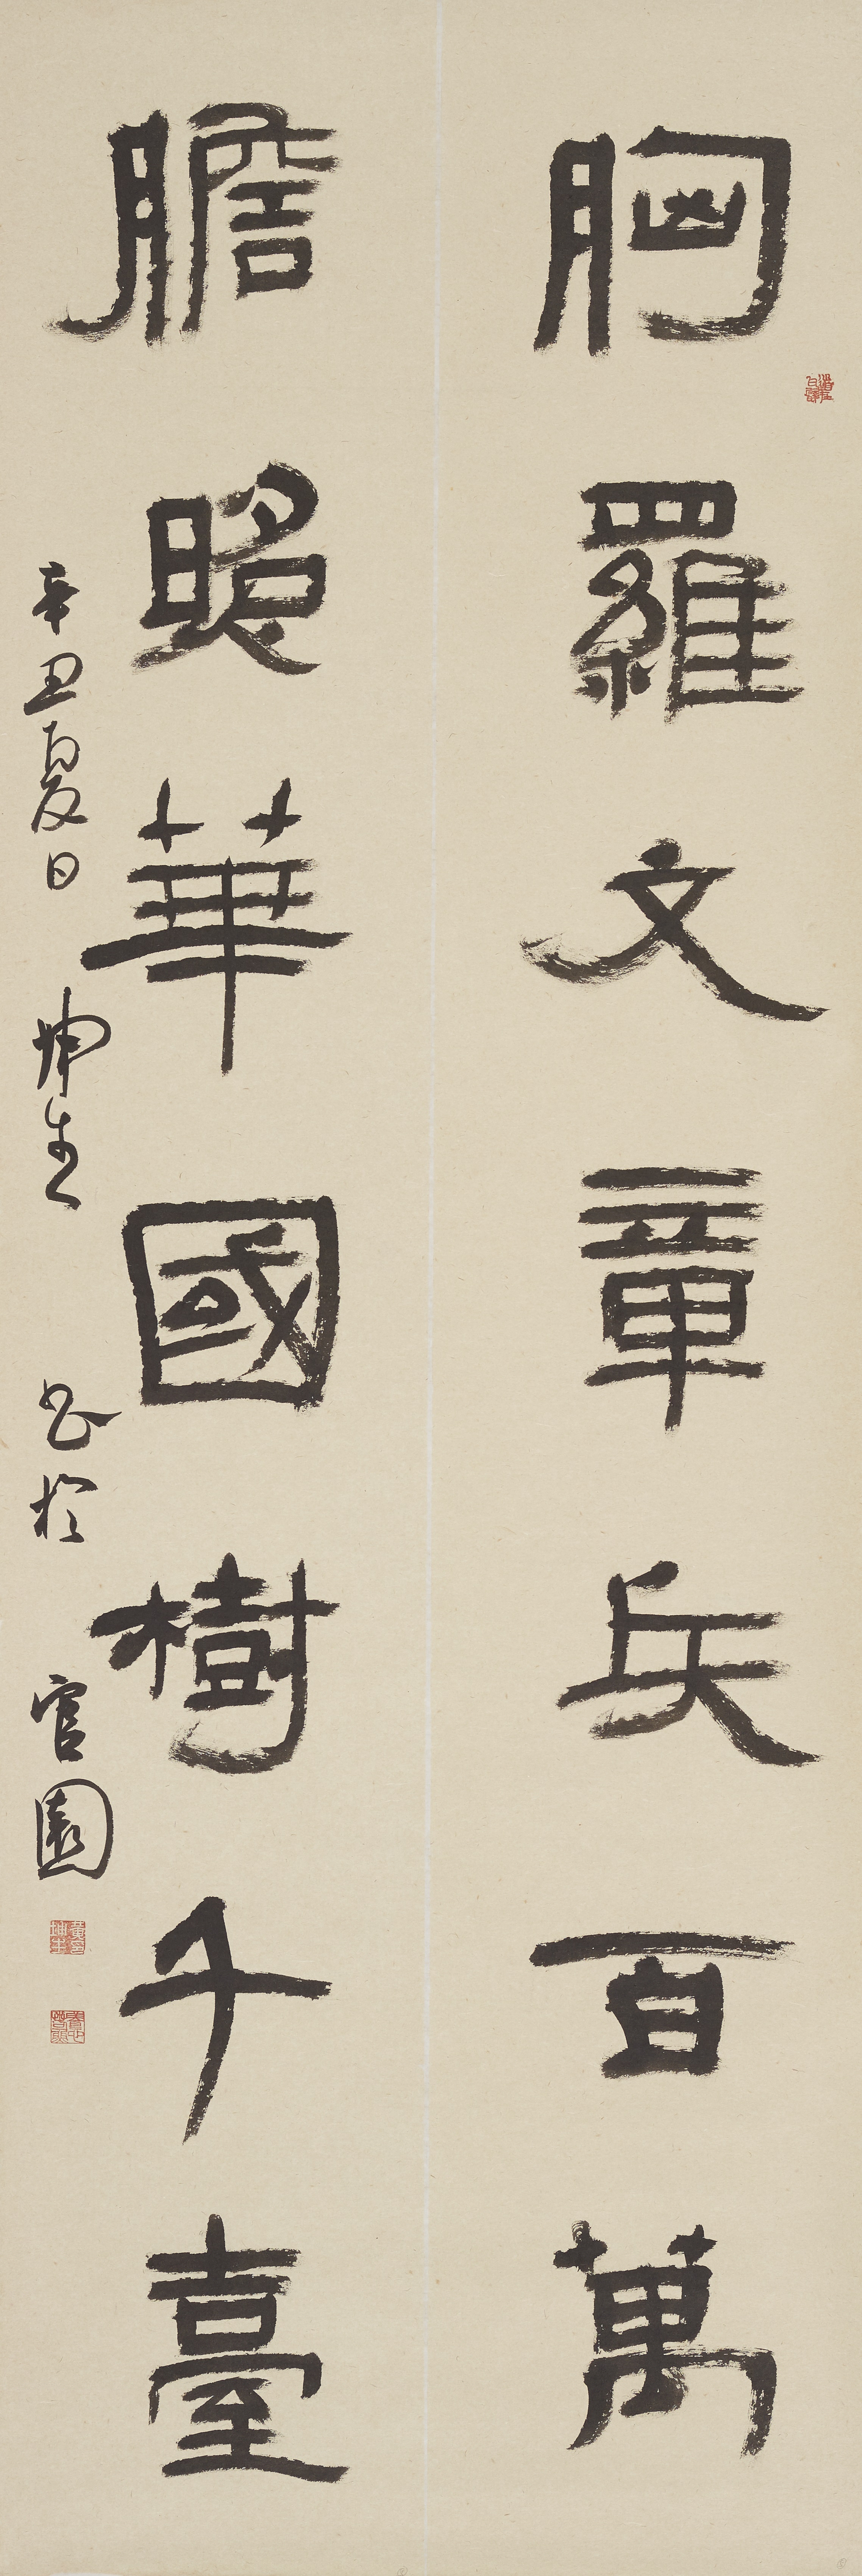 胸羅文章兵百萬
膽照華國樹千臺
辛丑夏日 坤生 書於 官園